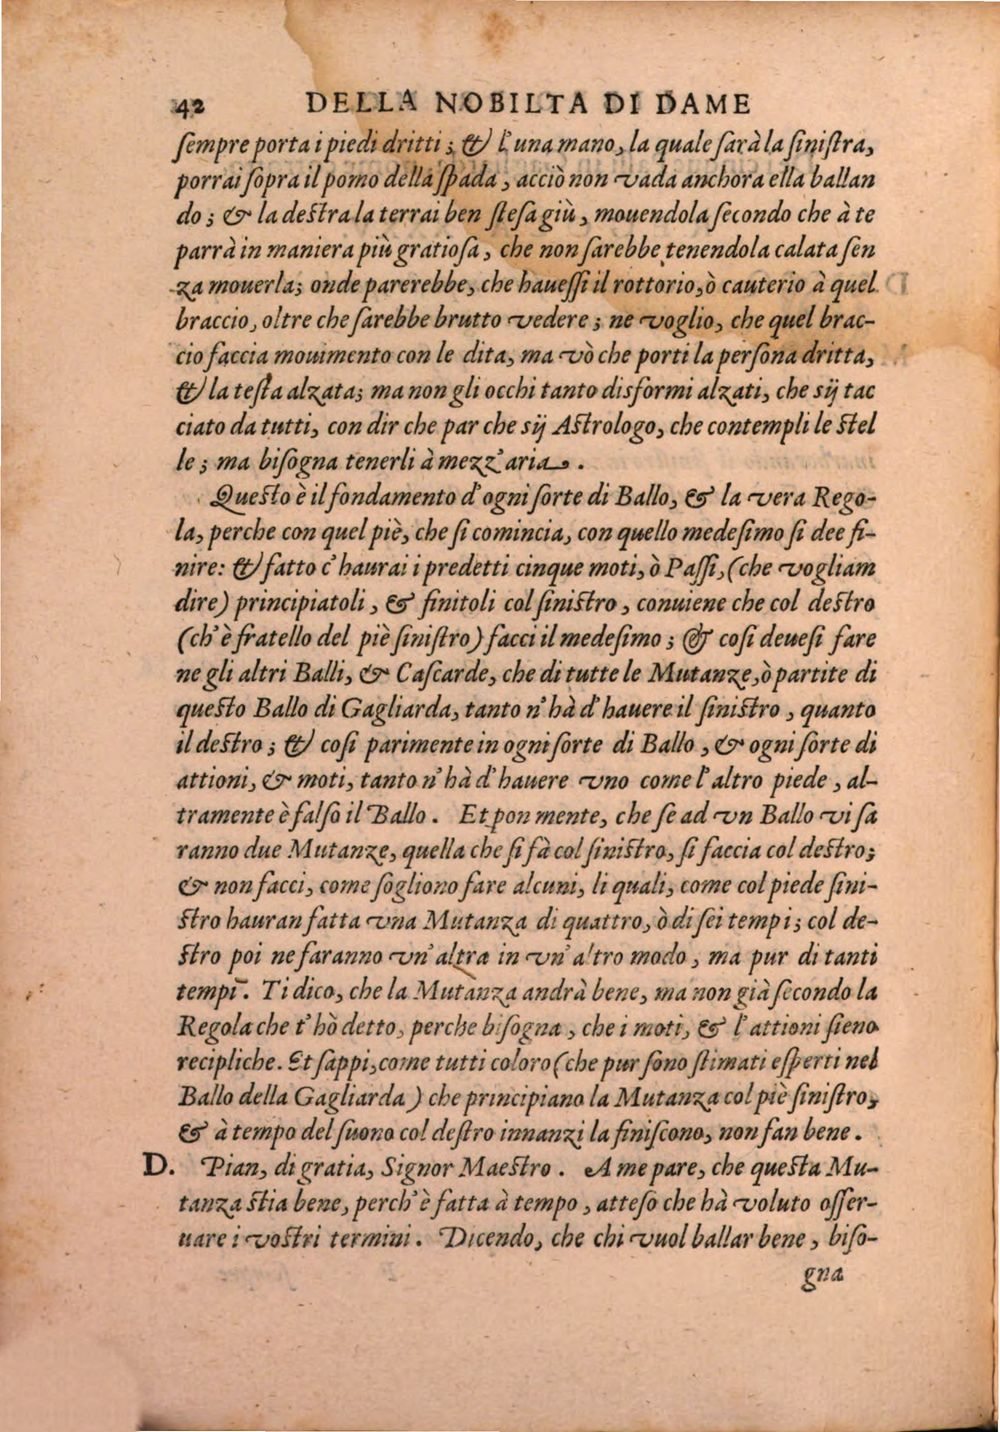 42 DELLA NOBILTA DI DAME
ſempre porta i piedi dritti; & l'una mano, la quale ſarà la ſiniſtra,
porrai ſopra il pomo della ſpada, acciò non vada anchora ella ballan
do; & la deſtra la terrai ben ſteſa giù, mouendola ſecondo che à te
parrà in maniera più gratioſa, che non ſarebbe tenendola calata ſen
za mouerla; onde parerebbe, che haueſſi il rottorio, ò cauterio à quel
braccio, oltre che ſarebbe brutto vedere; ne voglio, che quel brac-
cio faccia mouimento con le dita, ma vò che porti la perſona dritta,
& la teſta alzata; ma non gli occhi tanto disformi alzati, che sij tac
ciato da tutti, con dir che par che sij Aſtrologo, che contempli le ſtel
le; ma biſogna tenerli à mezz'aria.
Queſto è il fondamento d'ogni ſorte di Ballo, & la vera Rego-
la, perche con quel piè, che ſi comincia, con quello medeſimo ſi dee fi-
nire: & fatto c'haurai i predetti cinque moti, ò Paſſi, (che vogliam
dire) principiatoli, & finitoli col ſiniſtro, conuiene che col deſtro
(ch'è fratello del piè ſiniſtro) facci il medeſimo; & coſi deueſi fare
ne gli altri Balli, & Caſcarde, che di tutte le Mutanze, ò partite di
queſto Ballo di Gagliarda, tanto n'hà d'hauere il ſiniſtro, quanto
il deſtro; & coſi parimente in ogni ſorte di Ballo, & ogni ſorte di
attioni, & moti, tanto n'hà d'hauere vno come l'altro piede, al-
tramente è falſo il Ballo. Et pon mente, che ſe ad vn Ballo vi ſa
ranno due Mutanze, quella che ſi fà col ſiniſtro, ſi faccia col deſtro;
& non facci, come ſogliono fare alcuni, li quali, come col piede ſini-
ſtro hauran fatta vna Mutanza di quattro, ò di ſei tempi; col de-
ſtro poi ne faranno vn'altra in vn'altro modo, ma pur di tanti
tempi. Ti dico, che la Mutanza andrà bene, ma non già ſecondo la
Regola che t'hò detto, perche biſogna, che i moti, & l'attioni ſieno
recipliche. Et ſappi, come tutti coloro (che pur ſono ſtimati eſperti nel
Ballo della Gagliarda) che principiano la Mutanza col piè ſiniſtro,
& à tempo del ſuono col deſtro innanzi la finiſcono, non fan bene.
D. Pian, di gratia, Signor Maeſtro. A me pare, che queſta Mu-
tanza ſtia bene, perch'è fatta à tempo, atteſo che hà voluto oſſer-
uare i voſtri termini. Dicendo, che chi vuol ballar bene, biſo-
gna